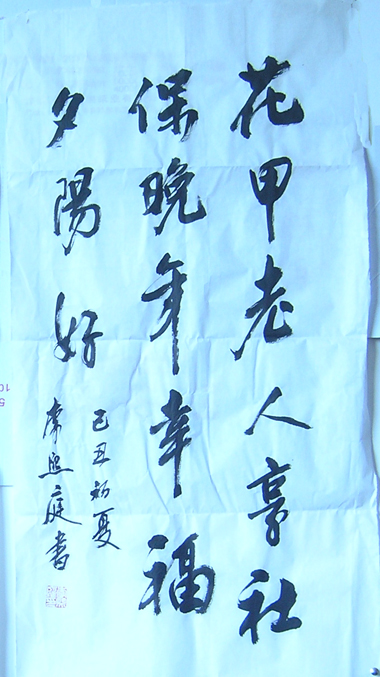 花甲老人享社
保晚年幸福
夕陽好
己丑初夏
照庭書